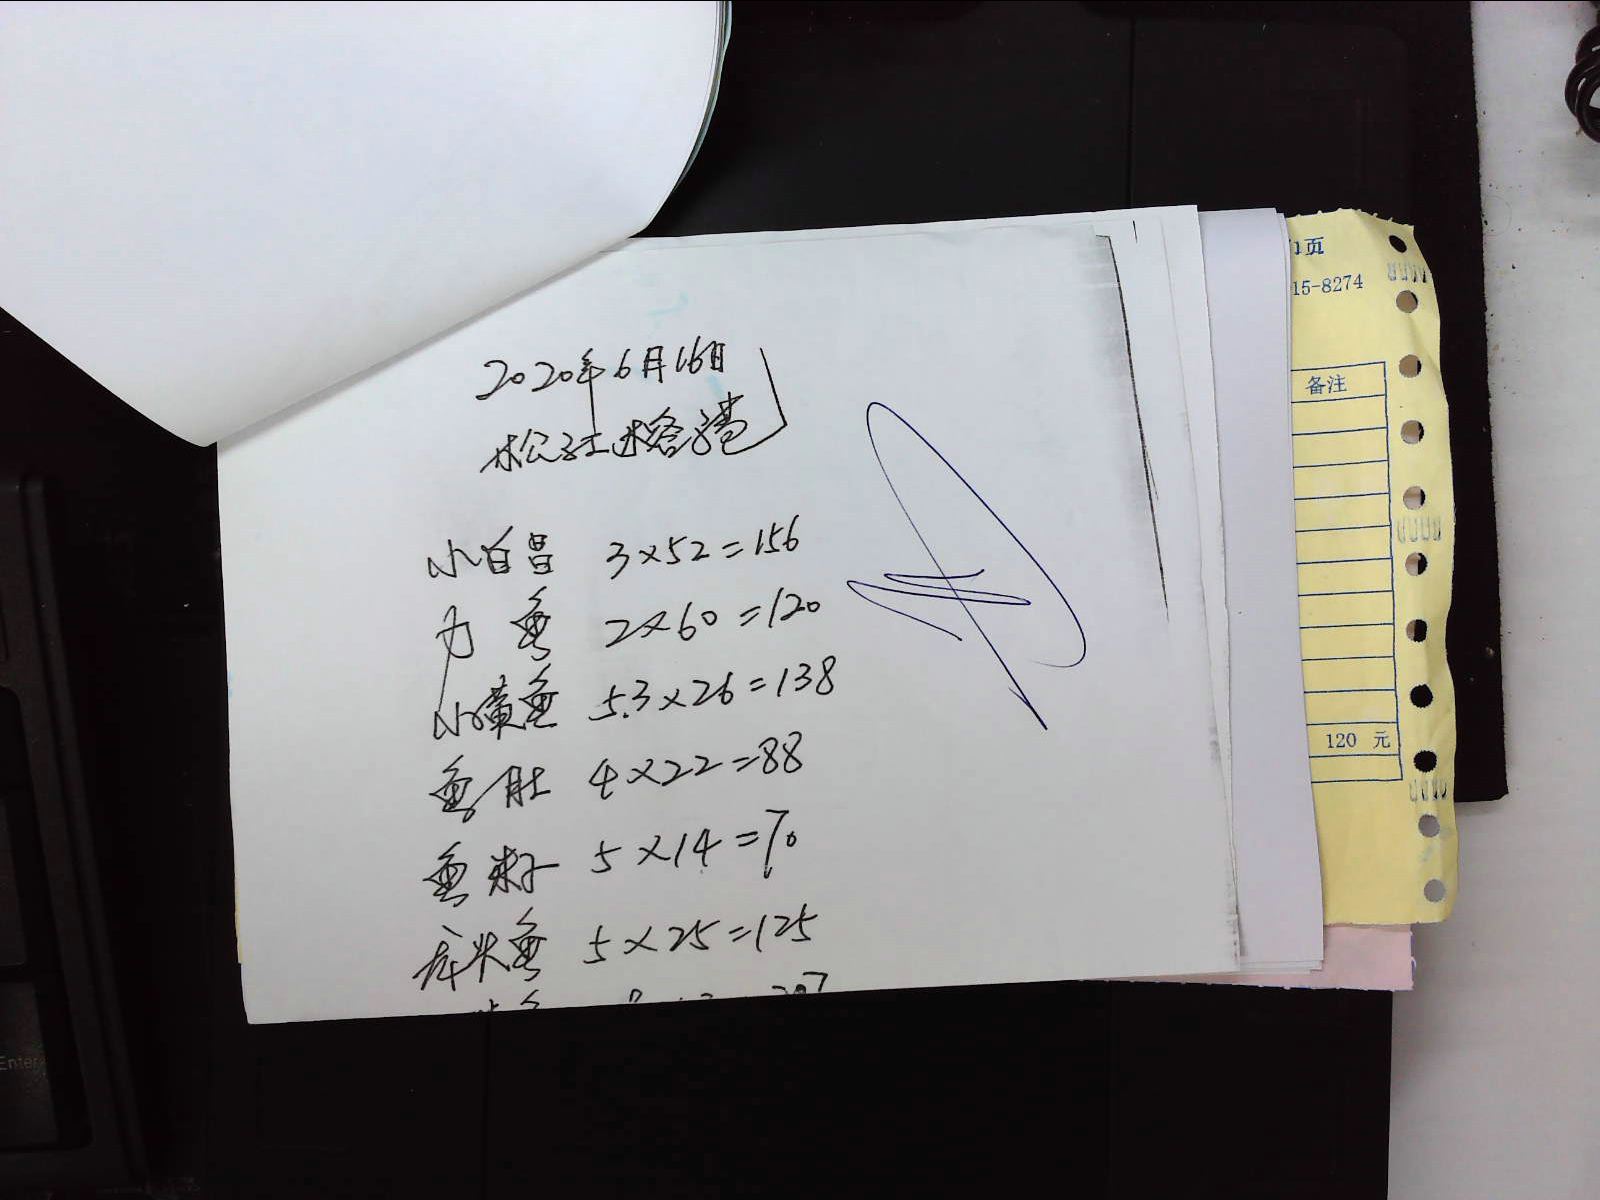 2020年6月16日
小白昌 3×52=156
刀鱼 2×60=120
小黄鱼 5.3×26=138
鱼肚 4×22=88
鱼籽 5×14=70
龙头鱼 5×25=125
1页
15-8274
备注
120 元
Enter